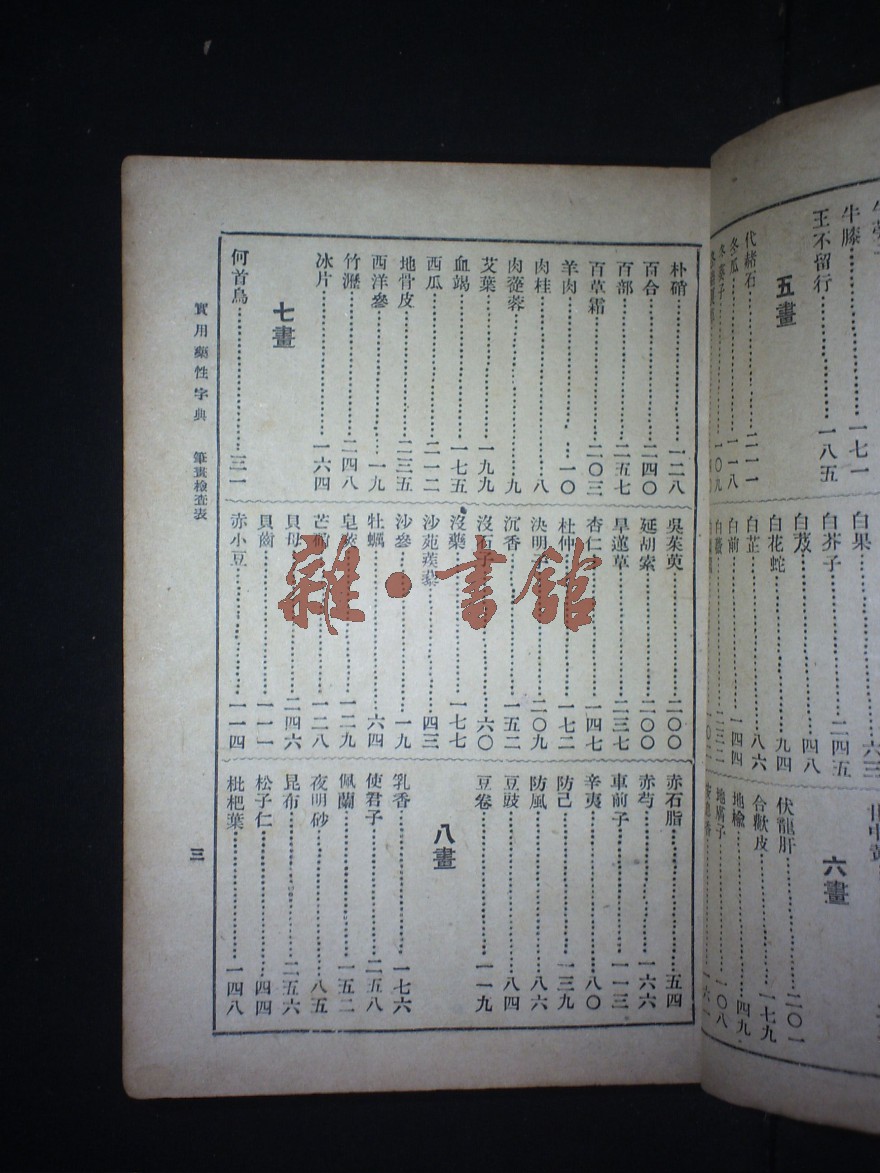 牛膝 一七一
王不留行 一八五
五畫
代赭石 二一一
冬瓜 一一八
冬葵子 一〇九
白果 六三
白芥子 二四五
白芨 四八
白花蛇 九四
白芷 八六
白前 一四四
白薇 二三二
六畫
伏龍肝 二〇一
合歡皮 一七九
地榆 四九
地膚子 一〇八
朴硝 一二八
百合 二四〇
百部 二五七
百草霜 二〇三
羊肉 一〇
肉桂 八
肉蓯蓉 九
艾葉 一九九
血竭 一七五
西瓜 二一二
地骨皮 二三五
西洋參 一九
竹瀝 二四八
冰片 一六四
七畫
何首烏 三一
吳茱萸 二〇〇
延胡索 二〇〇
旱蓮草 二三七
杏仁 一四七
杜仲 一七二
決明子 二〇九
沉香 一五二
沒石子 六〇
沒藥 一七七
沙苑蒺藜 四三
沙參 一九
牡蠣 六四
皂莢 一二九
芒硝 一二八
貝母 二四六
貝齒 一一一
赤小豆 一一四
赤石脂 五四
赤芍 一六六
車前子 一一三
辛夷 八〇
防己 一三九
防風 八六
豆豉 八四
豆卷 一一九
八畫
乳香 一七六
使君子 二五八
佩蘭 一五二
夜明砂 八五
昆布 二五六
松子仁 四四
枇杷葉 一四八
實用藥性字典 筆畫檢查表
三
雜·書館